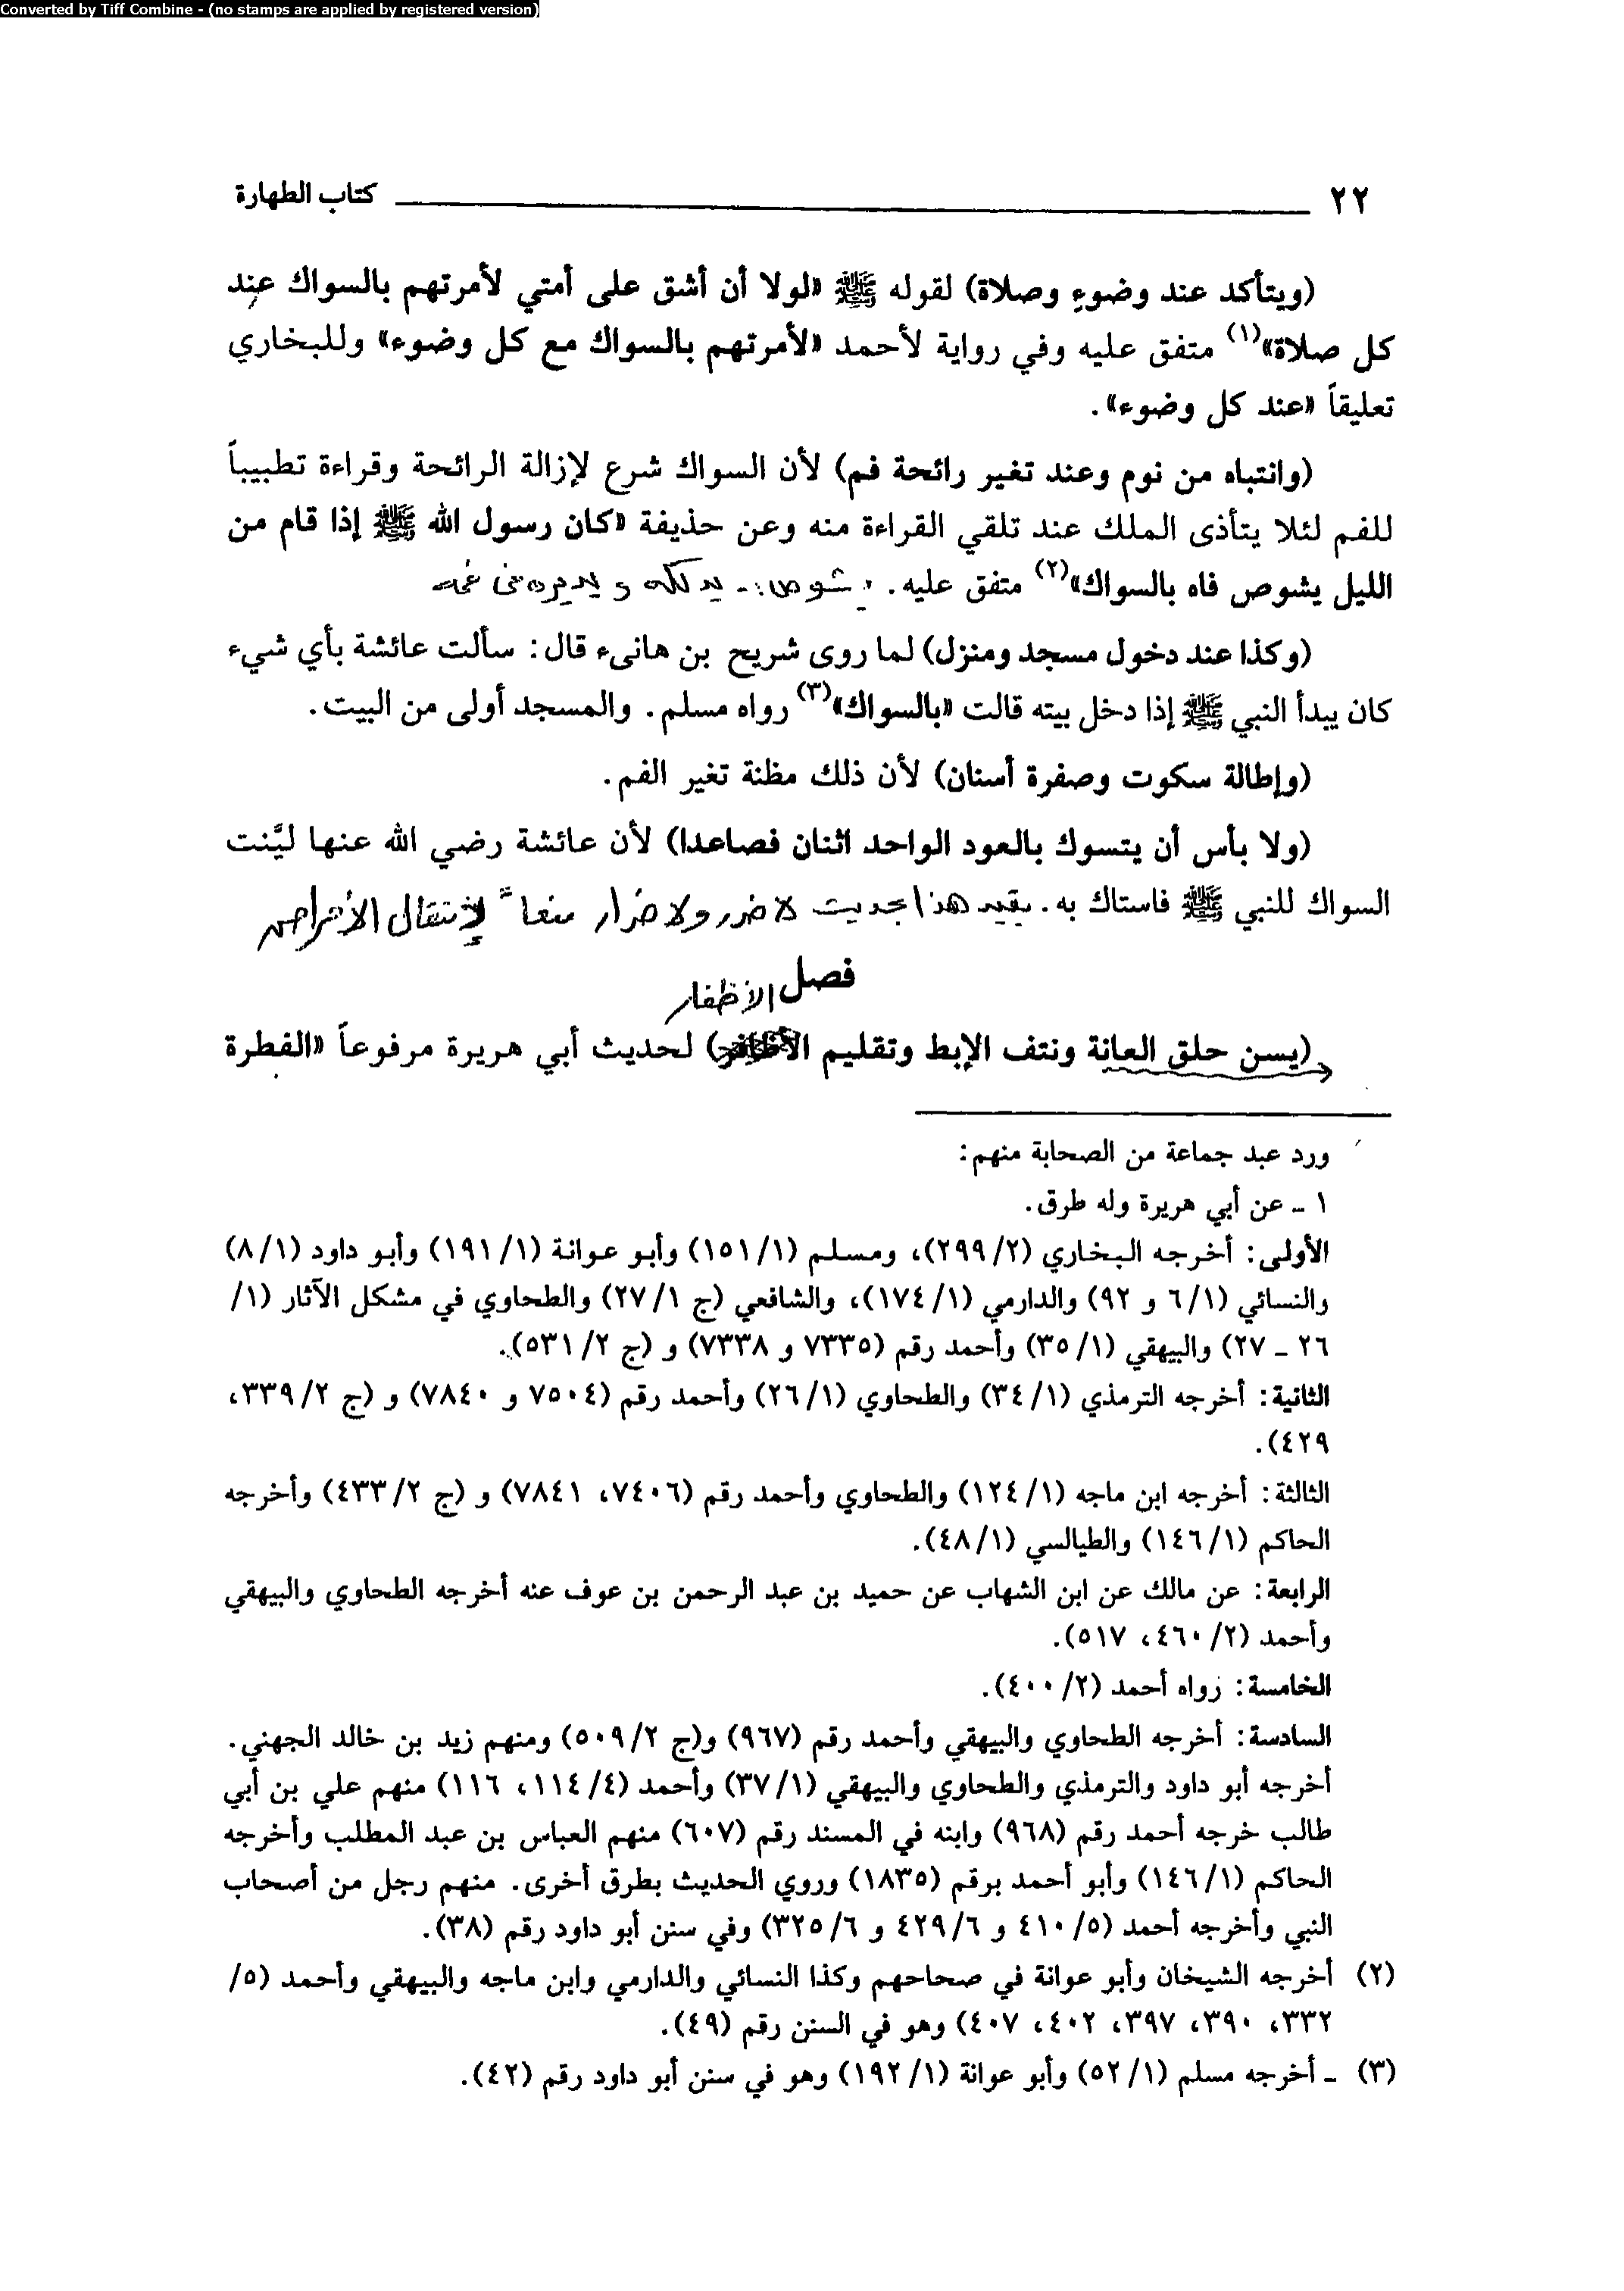 Converted by Tiff Combine - (no stamps are applied by registered version)
٢٢ كتاب الطهارة
(ويتأكد عند وضوءٍ وصلاة) لقوله ﷺ «لولا أن أشق على أمتي لأمرتهم بالسواك عند
كل صلاة»(١) متفق عليه وفي رواية لأحمد «لأمرتهم بالسواك مع كل وضوء» وللبخاري
تعليقاً «عند كل وضوء».
(وانتباه من نوم وعند تغير رائحة فم) لأن السواك شرع لإزالة الرائحة وقراءة تطييباً
للفم لئلا يتأذى الملك عند تلقي القراءة منه وعن حذيفة «كان رسول الله ﷺ إذا قام من
الليل يشوص فاه بالسواك»(٢) متفق عليه. يشوص :- يدلكه و يديره في فمه
(وكذا عند دخول مسجد ومنزل) لما روى شريح بن هانىء قال: سألت عائشة بأي شيء
كان يبدأ النبي ﷺ إذا دخل بيته قالت «بالسواك»(٣) رواه مسلم. والمسجد أولى من البيت.
(وإطالة سكوت وصفرة أسنان) لأن ذلك مظنة تغير الفم.
(ولا بأس أن يتسوك بالعود الواحد اثنان فصاعدا) لأن عائشة رضي الله عنها ليَّنت
السواك للنبي ﷺ فاستاك به. يقيد هذا بحديث لا ضرر ولا ضرار منعاً لإنتقال الأمراض
فصل
الأظفار
(يسن حلق العانة ونتف الإبط وتقليم الأظافر) لحديث أبي هريرة مرفوعاً «الفطرة
ورد عبد جماعة من الصحابة منهم:
١ ـ عن أبي هريرة وله طرق.
الأولى: أخرجه البخاري (٢/ ٢٩٩)، ومسلم (١/ ١٥١) وأبو عوانة (١/ ١٩١) وأبو داود (١/ ٨)
والنسائي (١/ ٦ و ٩٢) والدارمي (١/ ١٧٤)، والشافعي (ج ١/ ٢٧) والطحاوي في مشكل الآثار (١/
٢٦ ـ ٢٧) والبيهقي (١/ ٣٥) وأحمد رقم (٧٣٣٥ و ٧٣٣٨) و (ج ٢/ ٥٣١).
الثانية: أخرجه الترمذي (١/ ٣٤) والطحاوي (١/ ٢٦) وأحمد رقم (٧٥٠٤ و ٧٨٤٠) و (ج ٢/ ٣٣٩،
٤٢٩).
الثالثة: أخرجه ابن ماجه (١/ ١٢٤) والطحاوي وأحمد رقم (٧٤٠٦، ٧٨٤١) و (ج ٢/ ٤٣٣) وأخرجه
الحاكم (١/ ١٤٦) والطيالسي (١/ ٤٨).
الرابعة: عن مالك عن ابن الشهاب عن حميد بن عبد الرحمن بن عوف عنه أخرجه الطحاوي والبيهقي
وأحمد (٢/ ٤٦٠، ٥١٧).
الخامسة: رواه أحمد (٢/ ٤٠٠).
السادسة: أخرجه الطحاوي والبيهقي وأحمد رقم (٩٦٧) و(ج ٢/ ٥٠٩) ومنهم زيد بن خالد الجهني.
أخرجه أبو داود والترمذي والطحاوي والبيهقي (١/ ٣٧) وأحمد (٤/ ١١٤، ١١٦) منهم علي بن أبي
طالب خرجه أحمد رقم (٩٦٨) وابنه في المسند رقم (٦٠٧) منهم العباس بن عبد المطلب وأخرجه
الحاكم (١/ ١٤٦) وأبو أحمد برقم (١٨٣٥) وروي الحديث بطرق أخرى. منهم رجل من أصحاب
النبي وأخرجه أحمد (٥/ ٤١٠ و ٦/ ٤٢٩ و ٦/ ٣٢٥) وفي سنن أبو داود رقم (٣٨).
(٢) أخرجه الشيخان وأبو عوانة في صحاحهم وكذا النسائي والدارمي وابن ماجه والبيهقي وأحمد (٥/
٣٣٢، ٣٩٠، ٣٩٧، ٤٠٢، ٤٠٧) وهو في السنن رقم (٤٩).
(٣) ـ أخرجه مسلم (١/ ٥٢) وأبو عوانة (١/ ١٩٢) وهو في سنن أبو داود رقم (٤٢).